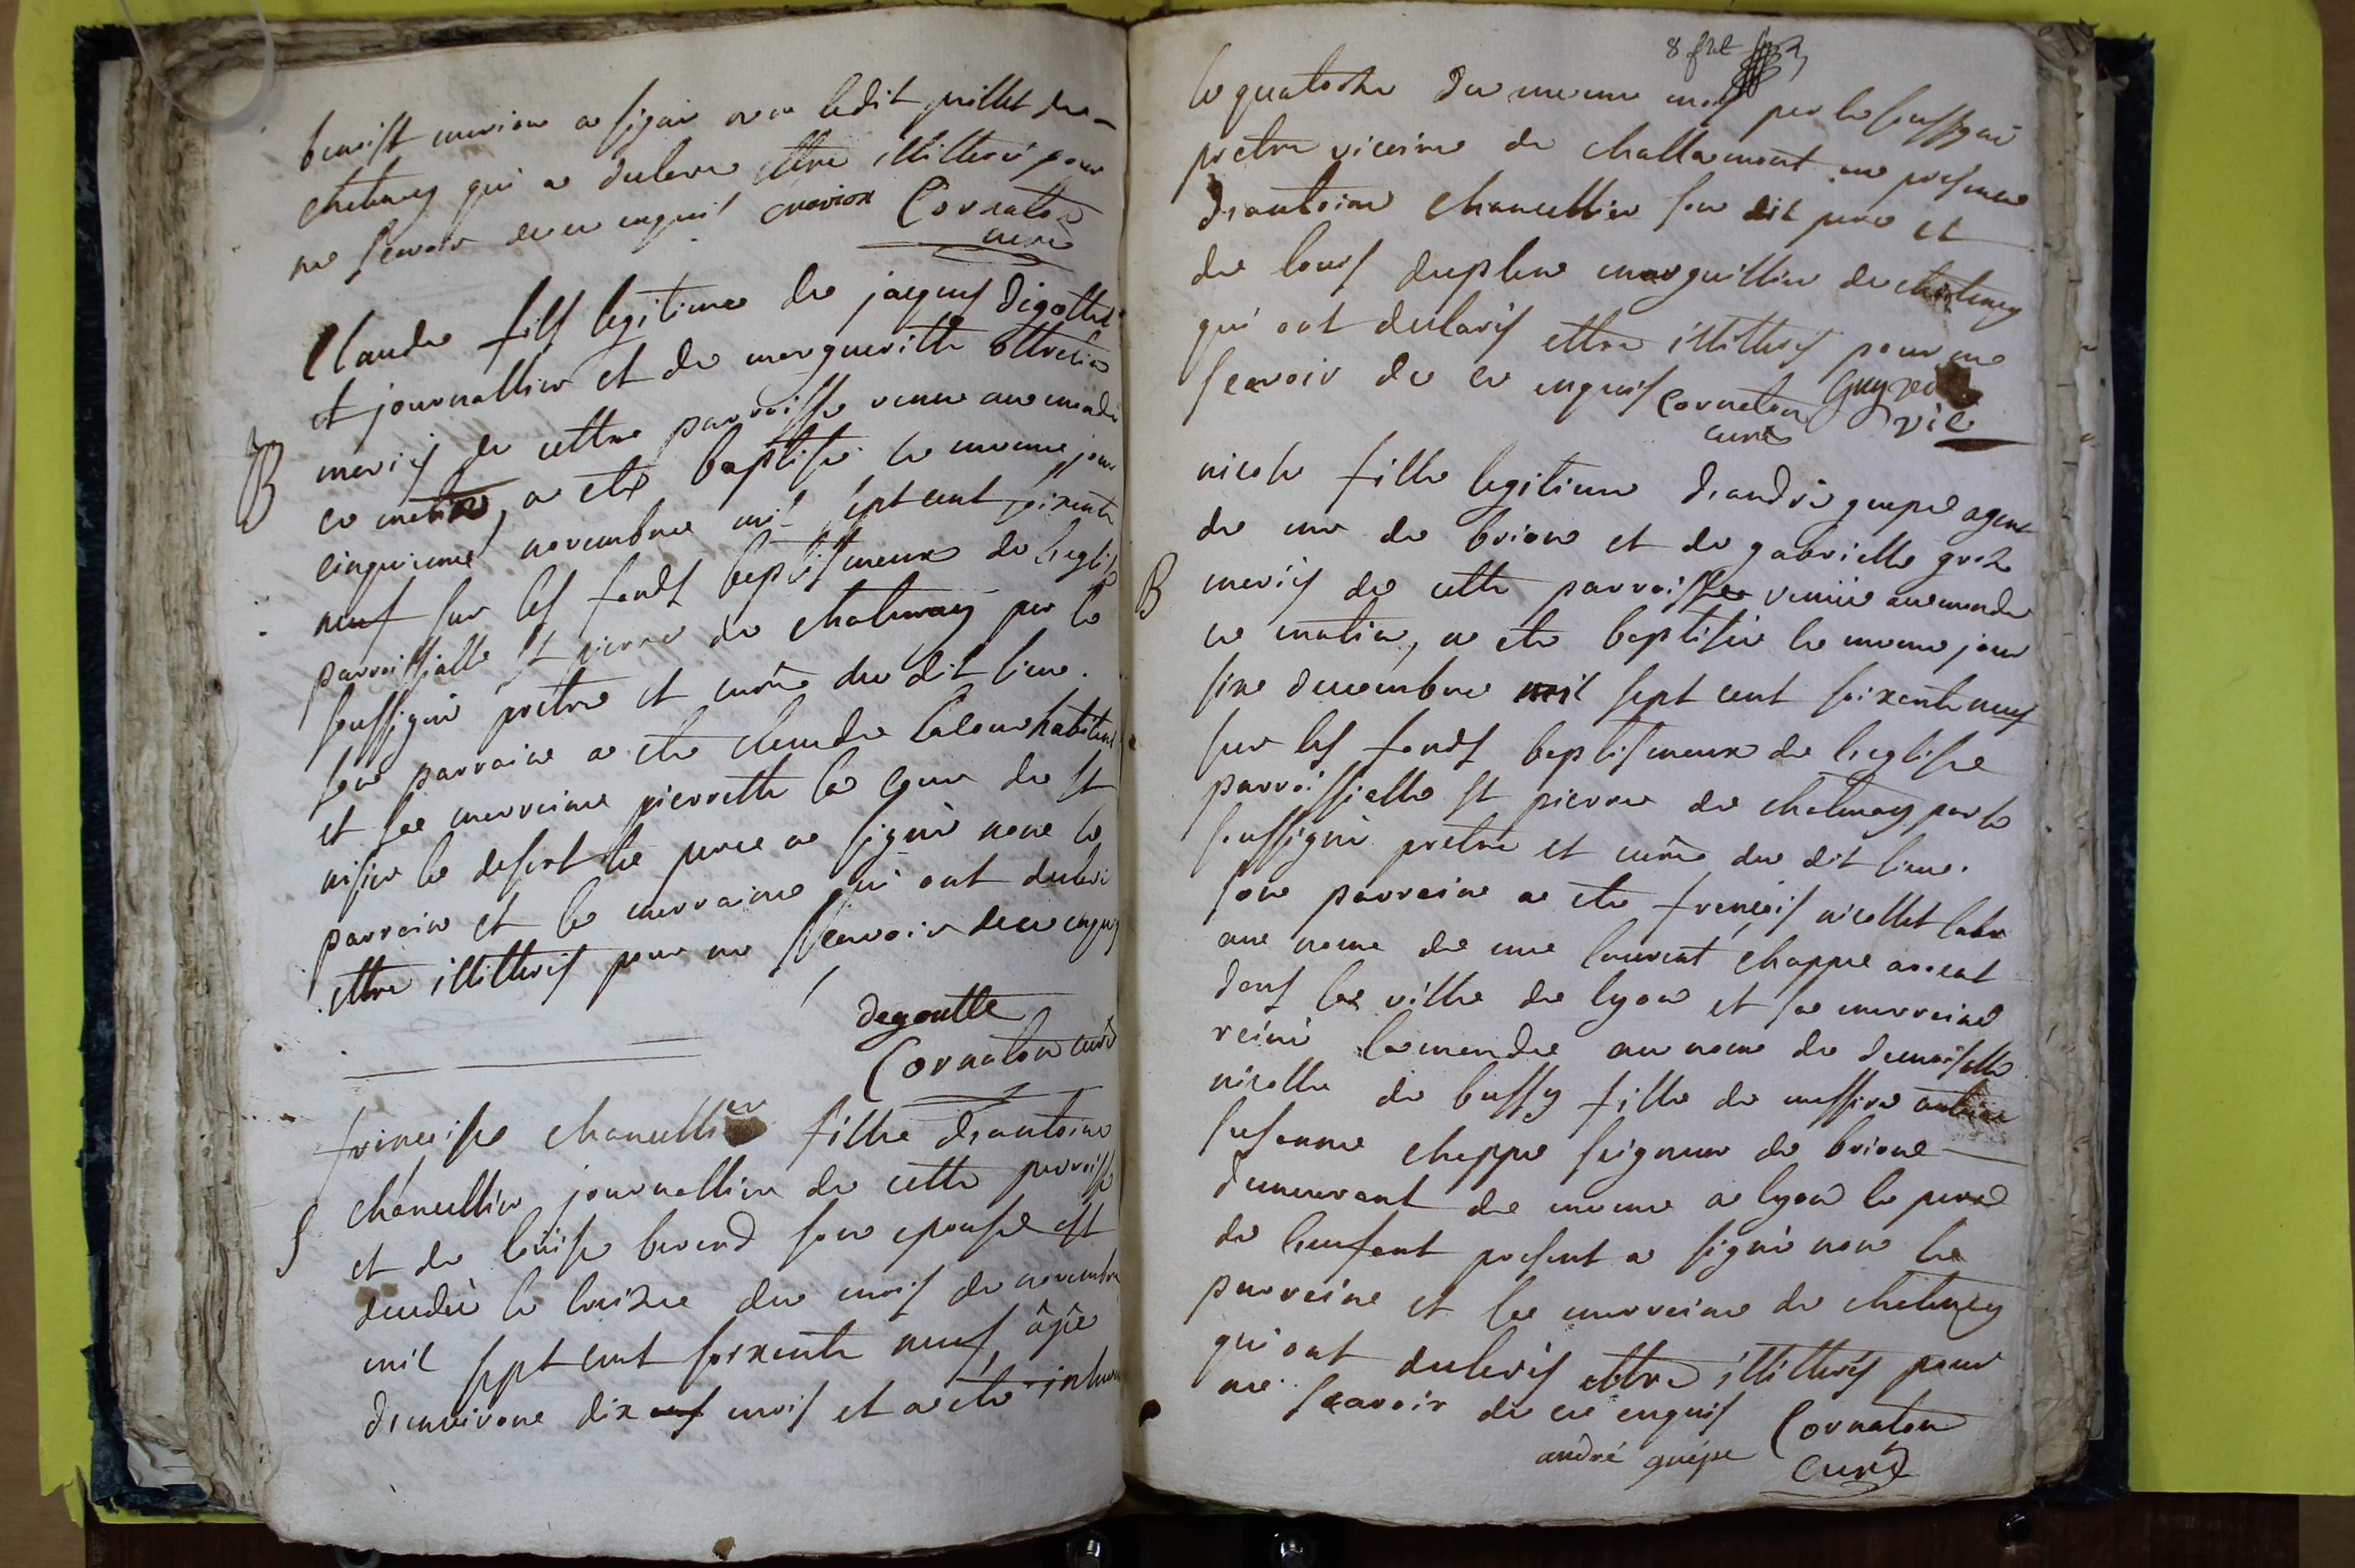 benoist merion a signé non ledit pillet de
chatenay qui a declaré ettre illitteré pour
ne scavoir de ce enquis merion Cornaton
curé
Claude fils legitime de jaques Digottet
et journallier et de margueritte
mariés de cette parroisse venu au monde
B
ce matin, a eté baptisé le meme jour
cinquieme novembre mil sept cent soixante
neuf sur les fonds baptismeaux de leglise
parroissialle st pierre de chatenay par le
soussigné pretre et curé du dit lieu.
son parrain a eté claude habitant
et sa marraine pierrette la de st
nisier le desert le pere a signé non le
parrain et la marraine qui ont declaré
ettre illitterés pour ne scavoir de ce enquis
degoutte
Cornaton curé
francoise chancellier fille d'antoine
chancellier journallier de cette parroisse
S
et de louise berend son epouse est
decedée le treize du mois de novembre
mil sept cent soixante neuf, âgée
d'environ dix mois et a eté inhumée
8 f.et
le quatorze du meme mois par le soussigné
pretre vicaire de challamont en presence
d'antoine chancellier son dit pere et
de louis duplen marguillier de chatenay
qui ont declarés ettre illitterés pour ne
scavoir de ce enquis Cornaton Guy
curé vic
nicole fille legitime d'andré guepe agent
de mr de brione et de gabrielle groz
B
mariés de cette parroisse venüe au monde
ce matin, a eté baptisée le meme jour
six decembre mil sept cent soixante neuf
sur les fonds baptismeaux de leglise
parroissialle st pierre de chatenay par le
soussigné pretre et curé du dit lieu.
son parrain a eté françois nicollet labr
au nom de mre laurent chappe avocat
dans la ville de lyon et sa marraine
reine lamendre au nom de demoiselle
nicolle de bussy fille de messire antoine
susanne chappe seigneur de brione
demeurant de meme a lyon le pere
de lenfant present a signé non le
parreine et la marraine de chatenay
qui ont declarés ettre illitterés pour
ne scavoir de ce enquis Cornaton
andré guépe curé